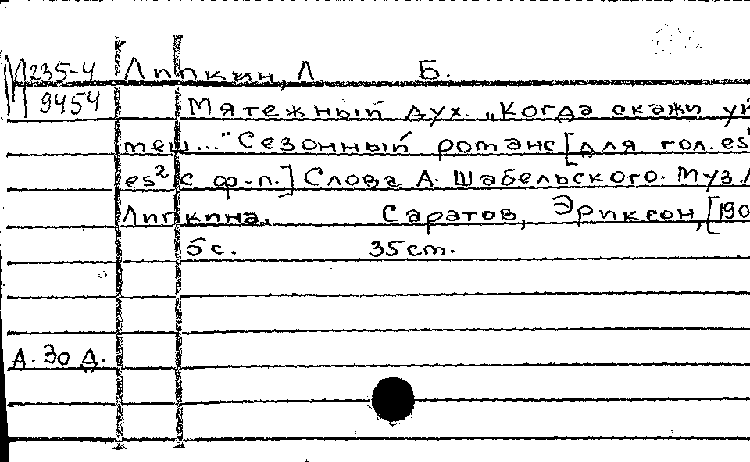 М 235-4 Липкин, Л Б.
9454 Мятежный дух. „Когда скажи уй
меш..." Сезонный романс [для гол. es¹
es² с ф-п.] Слова А. Шабельского. Муз.
Липкина. Саратов, Эриксон, [190
5 с. 35 cm.
А. Зо Д.